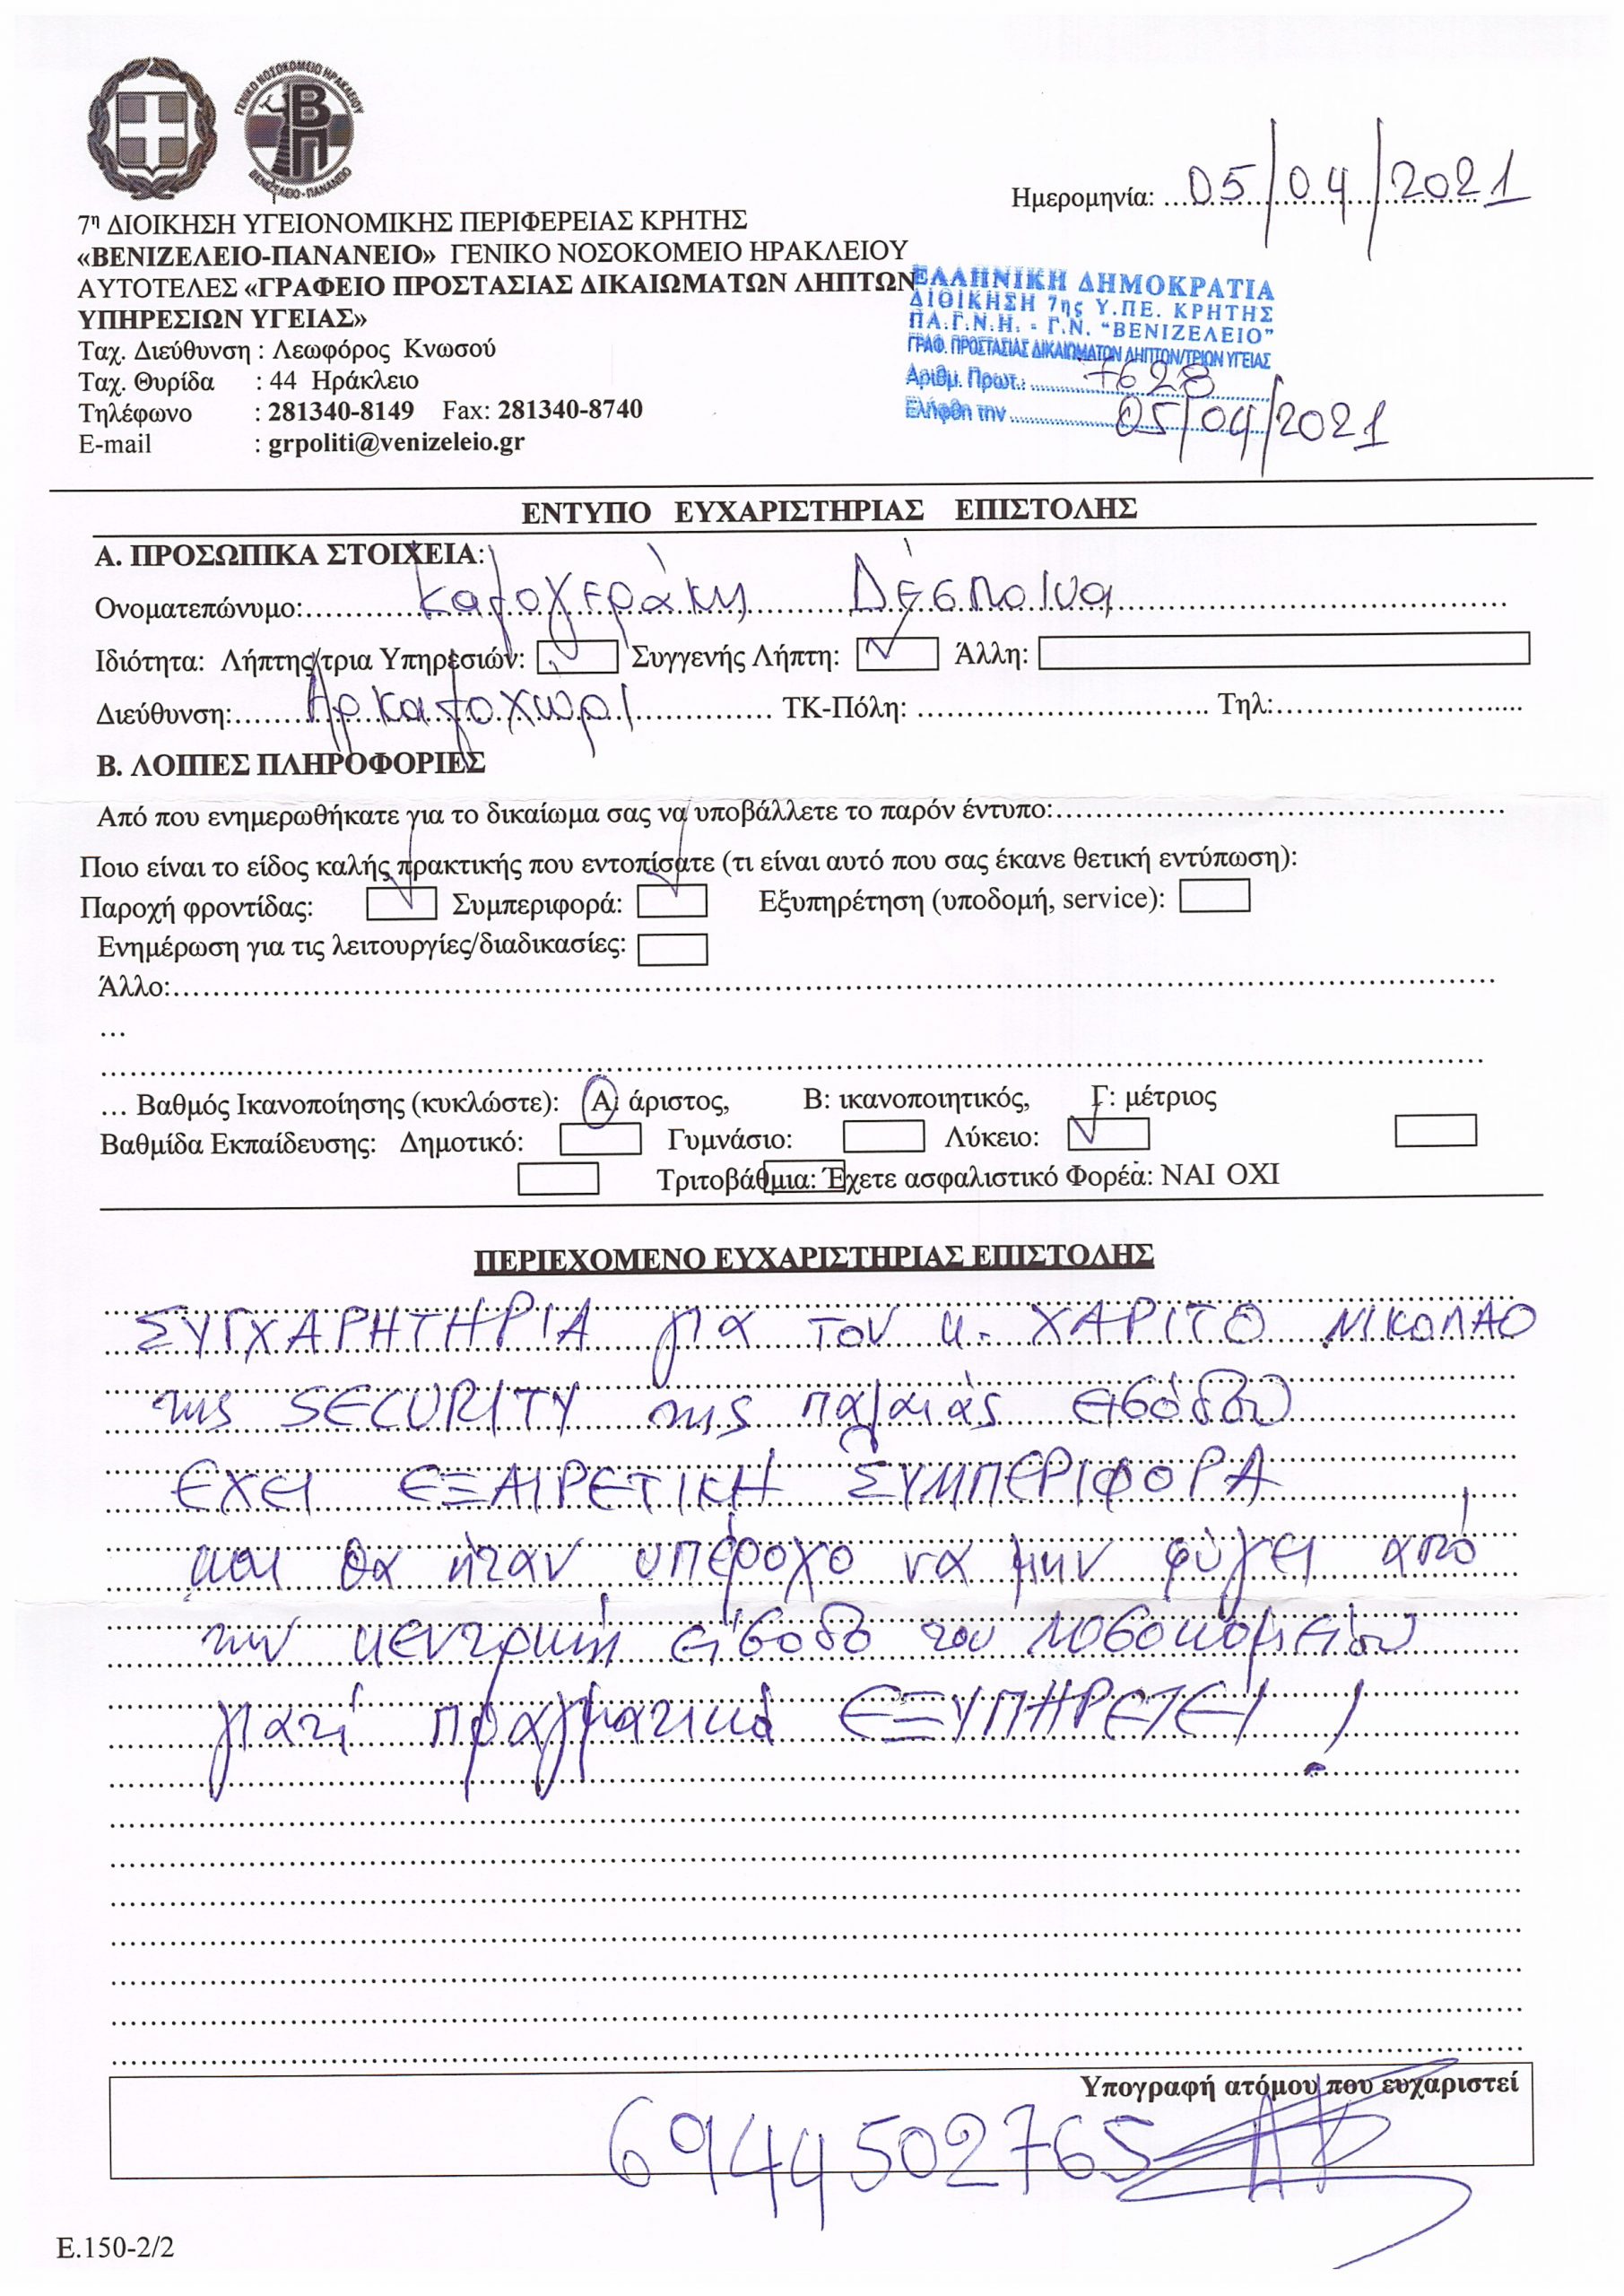 ΓΕΝΙΚΟ ΝΟΣΟΚΟΜΕΙΟ ΗΡΑΚΛΕΙΟΥ
ΒΠ
ΒΕΝΙΖΕΛΕΙΟ-ΠΑΝΑΝΕΙΟ
Ημερομηνία: 05/04/2021
7η ΔΙΟΙΚΗΣΗ ΥΓΕΙΟΝΟΜΙΚΗΣ ΠΕΡΙΦΕΡΕΙΑΣ ΚΡΗΤΗΣ
«ΒΕΝΙΖΕΛΕΙΟ-ΠΑΝΑΝΕΙΟ» ΓΕΝΙΚΟ ΝΟΣΟΚΟΜΕΙΟ ΗΡΑΚΛΕΙΟΥ
ΑΥΤΟΤΕΛΕΣ «ΓΡΑΦΕΙΟ ΠΡΟΣΤΑΣΙΑΣ ΔΙΚΑΙΩΜΑΤΩΝ ΛΗΠΤΩΝ
ΥΠΗΡΕΣΙΩΝ ΥΓΕΙΑΣ»
Ταχ. Διεύθυνση : Λεωφόρος Κνωσού
Ταχ. Θυρίδα : 44 Ηράκλειο
Τηλέφωνο : 281340-8149 Fax: 281340-8740
E-mail : grpoliti@venizeleio.gr
ΕΛΛΗΝΙΚΗ ΔΗΜΟΚΡΑΤΙΑ
ΔΙΟΙΚΗΣΗ 7ης Υ.ΠΕ. ΚΡΗΤΗΣ
ΠΑ.Γ.Ν.Η. - Γ.Ν. "ΒΕΝΙΖΕΛΕΙΟ"
ΓΡΑΦ. ΠΡΟΣΤΑΣΙΑΣ ΔΙΚΑΙΩΜΑΤΩΝ ΛΗΠΤΩΝ/ΤΡΙΩΝ ΥΓΕΙΑΣ
Αριθμ. Πρωτ.: 7628
Ελήφθη την 05/04/2021
ΕΝΤΥΠΟ ΕΥΧΑΡΙΣΤΗΡΙΑΣ ΕΠΙΣΤΟΛΗΣ
Α. ΠΡΟΣΩΠΙΚΑ ΣΤΟΙΧΕΙΑ:
Ονοματεπώνυμο: Καλοχεράκη Δέσποινα
Ιδιότητα: Λήπτης/τρια Υπηρεσιών: Συγγενής Λήπτη: ✓ Άλλη:
Διεύθυνση: Αρκαλοχώρι ΤΚ-Πόλη: Τηλ:
Β. ΛΟΙΠΕΣ ΠΛΗΡΟΦΟΡΙΕΣ
Από που ενημερωθήκατε για το δικαίωμα σας να υποβάλλετε το παρόν έντυπο:
Ποιο είναι το είδος καλής πρακτικής που εντοπίσατε (τι είναι αυτό που σας έκανε θετική εντύπωση):
Παροχή φροντίδας: ✓ Συμπεριφορά: ✓ Εξυπηρέτηση (υποδομή, service):
Ενημέρωση για τις λειτουργίες/διαδικασίες:
Άλλο:
…
… Βαθμός Ικανοποίησης (κυκλώστε): Α: άριστος, Β: ικανοποιητικός, Γ: μέτριος
Βαθμίδα Εκπαίδευσης: Δημοτικό: Γυμνάσιο: Λύκειο: ✓
Τριτοβάθμια: Έχετε ασφαλιστικό Φορέα: ΝΑΙ ΟΧΙ
ΠΕΡΙΕΧΟΜΕΝΟ ΕΥΧΑΡΙΣΤΗΡΙΑΣ ΕΠΙΣΤΟΛΗΣ
ΣΥΓΧΑΡΗΤΗΡΙΑ για τον κ. ΧΑΡΙΤΟ ΝΙΚΟΛΑΟ
της SECURITY της παλαιάς εισόδου
ΕΧΕΙ ΕΞΑΙΡΕΤΙΚΗ ΣΥΜΠΕΡΙΦΟΡΑ
και θα ήταν υπέροχο να μην φύγει από
την κεντρική είσοδο του νοσοκομείου
γιατί πραγματικά ΕΞΥΠΗΡΕΤΕΙ!
Υπογραφή ατόμου που ευχαριστεί
6944502765
Ε.150-2/2